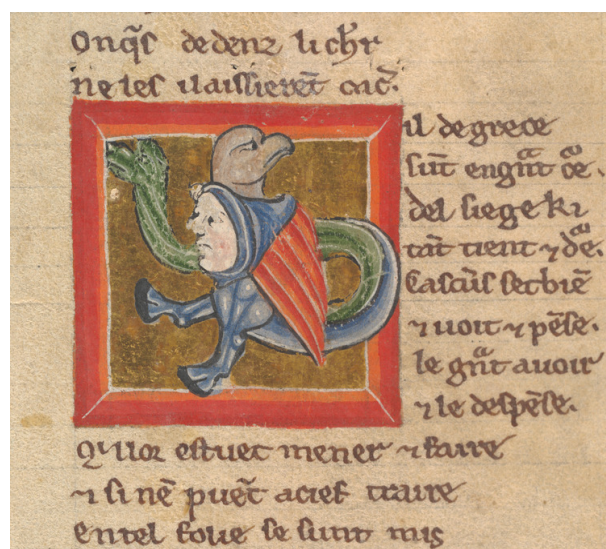 Onq̃s dedenz li chr̃
ne les i laissierẽt onc̃.
il de grece
sũt en gᵃñt
del siege ki
tãt tient ⁊
Cascũs set biẽ
⁊ uoit ⁊ pẽse.
le gᵃñt auoir
⁊ le despẽse.
Quor estuet mener ⁊ faire
⁊ si nẽ puẽt a cief traire
En tel folie se sunt mis